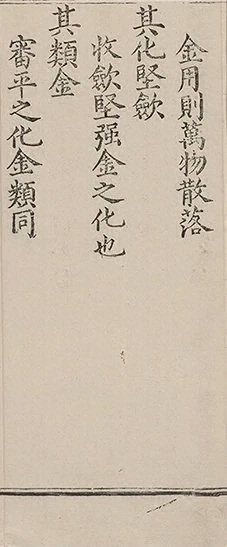 金用則萬物散落
其化堅斂
收斂堅强金之化也
其類金
審平之化金類同